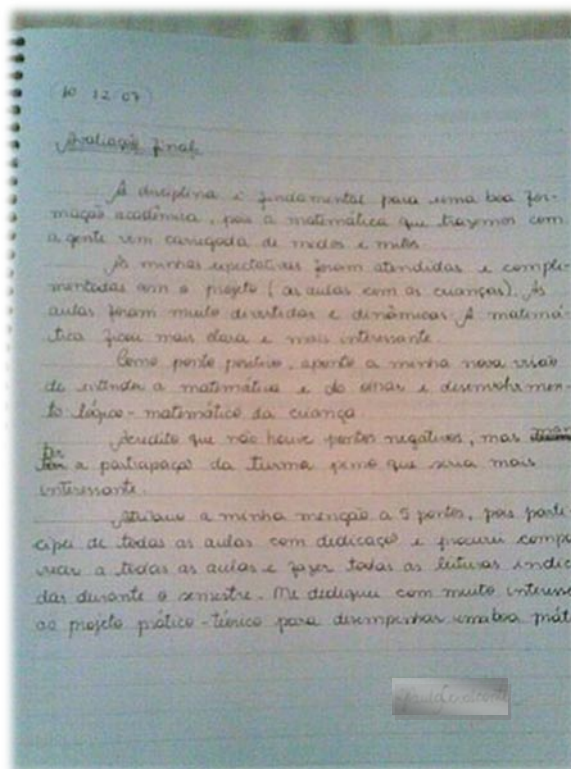 10 12 07
Avaliação final
A disciplina é fundamental para uma boa for-
mação acadêmica, pois a matemática que trazemos com
a gente vem carregada de medos e mitos.
As minhas expectativas foram atendidas e comple-
mentadas com o projeto (as aulas com as crianças). As
aulas foram muito divertidas e dinâmicas. A matemá-
tica ficou mais clara e mais interessante.
Como ponto positivo, aponto a minha nova visão
de entender a matemática e do olhar e desenvolvimen-
to lógico-matemático da criança
Acredito que não houve pontos negativos, mas
a participação da turma penso que seria mais
interessante.
Atribuo a minha menção a 5 pontos, pois parti-
cipei de todas as aulas com dedicação e procurei compa
recer a todas as aulas e fazer todas as leituras indic
das durante o semestre. Me dediquei com muito interess
ao projeto prático-teórico para desempenhar uma boa prát